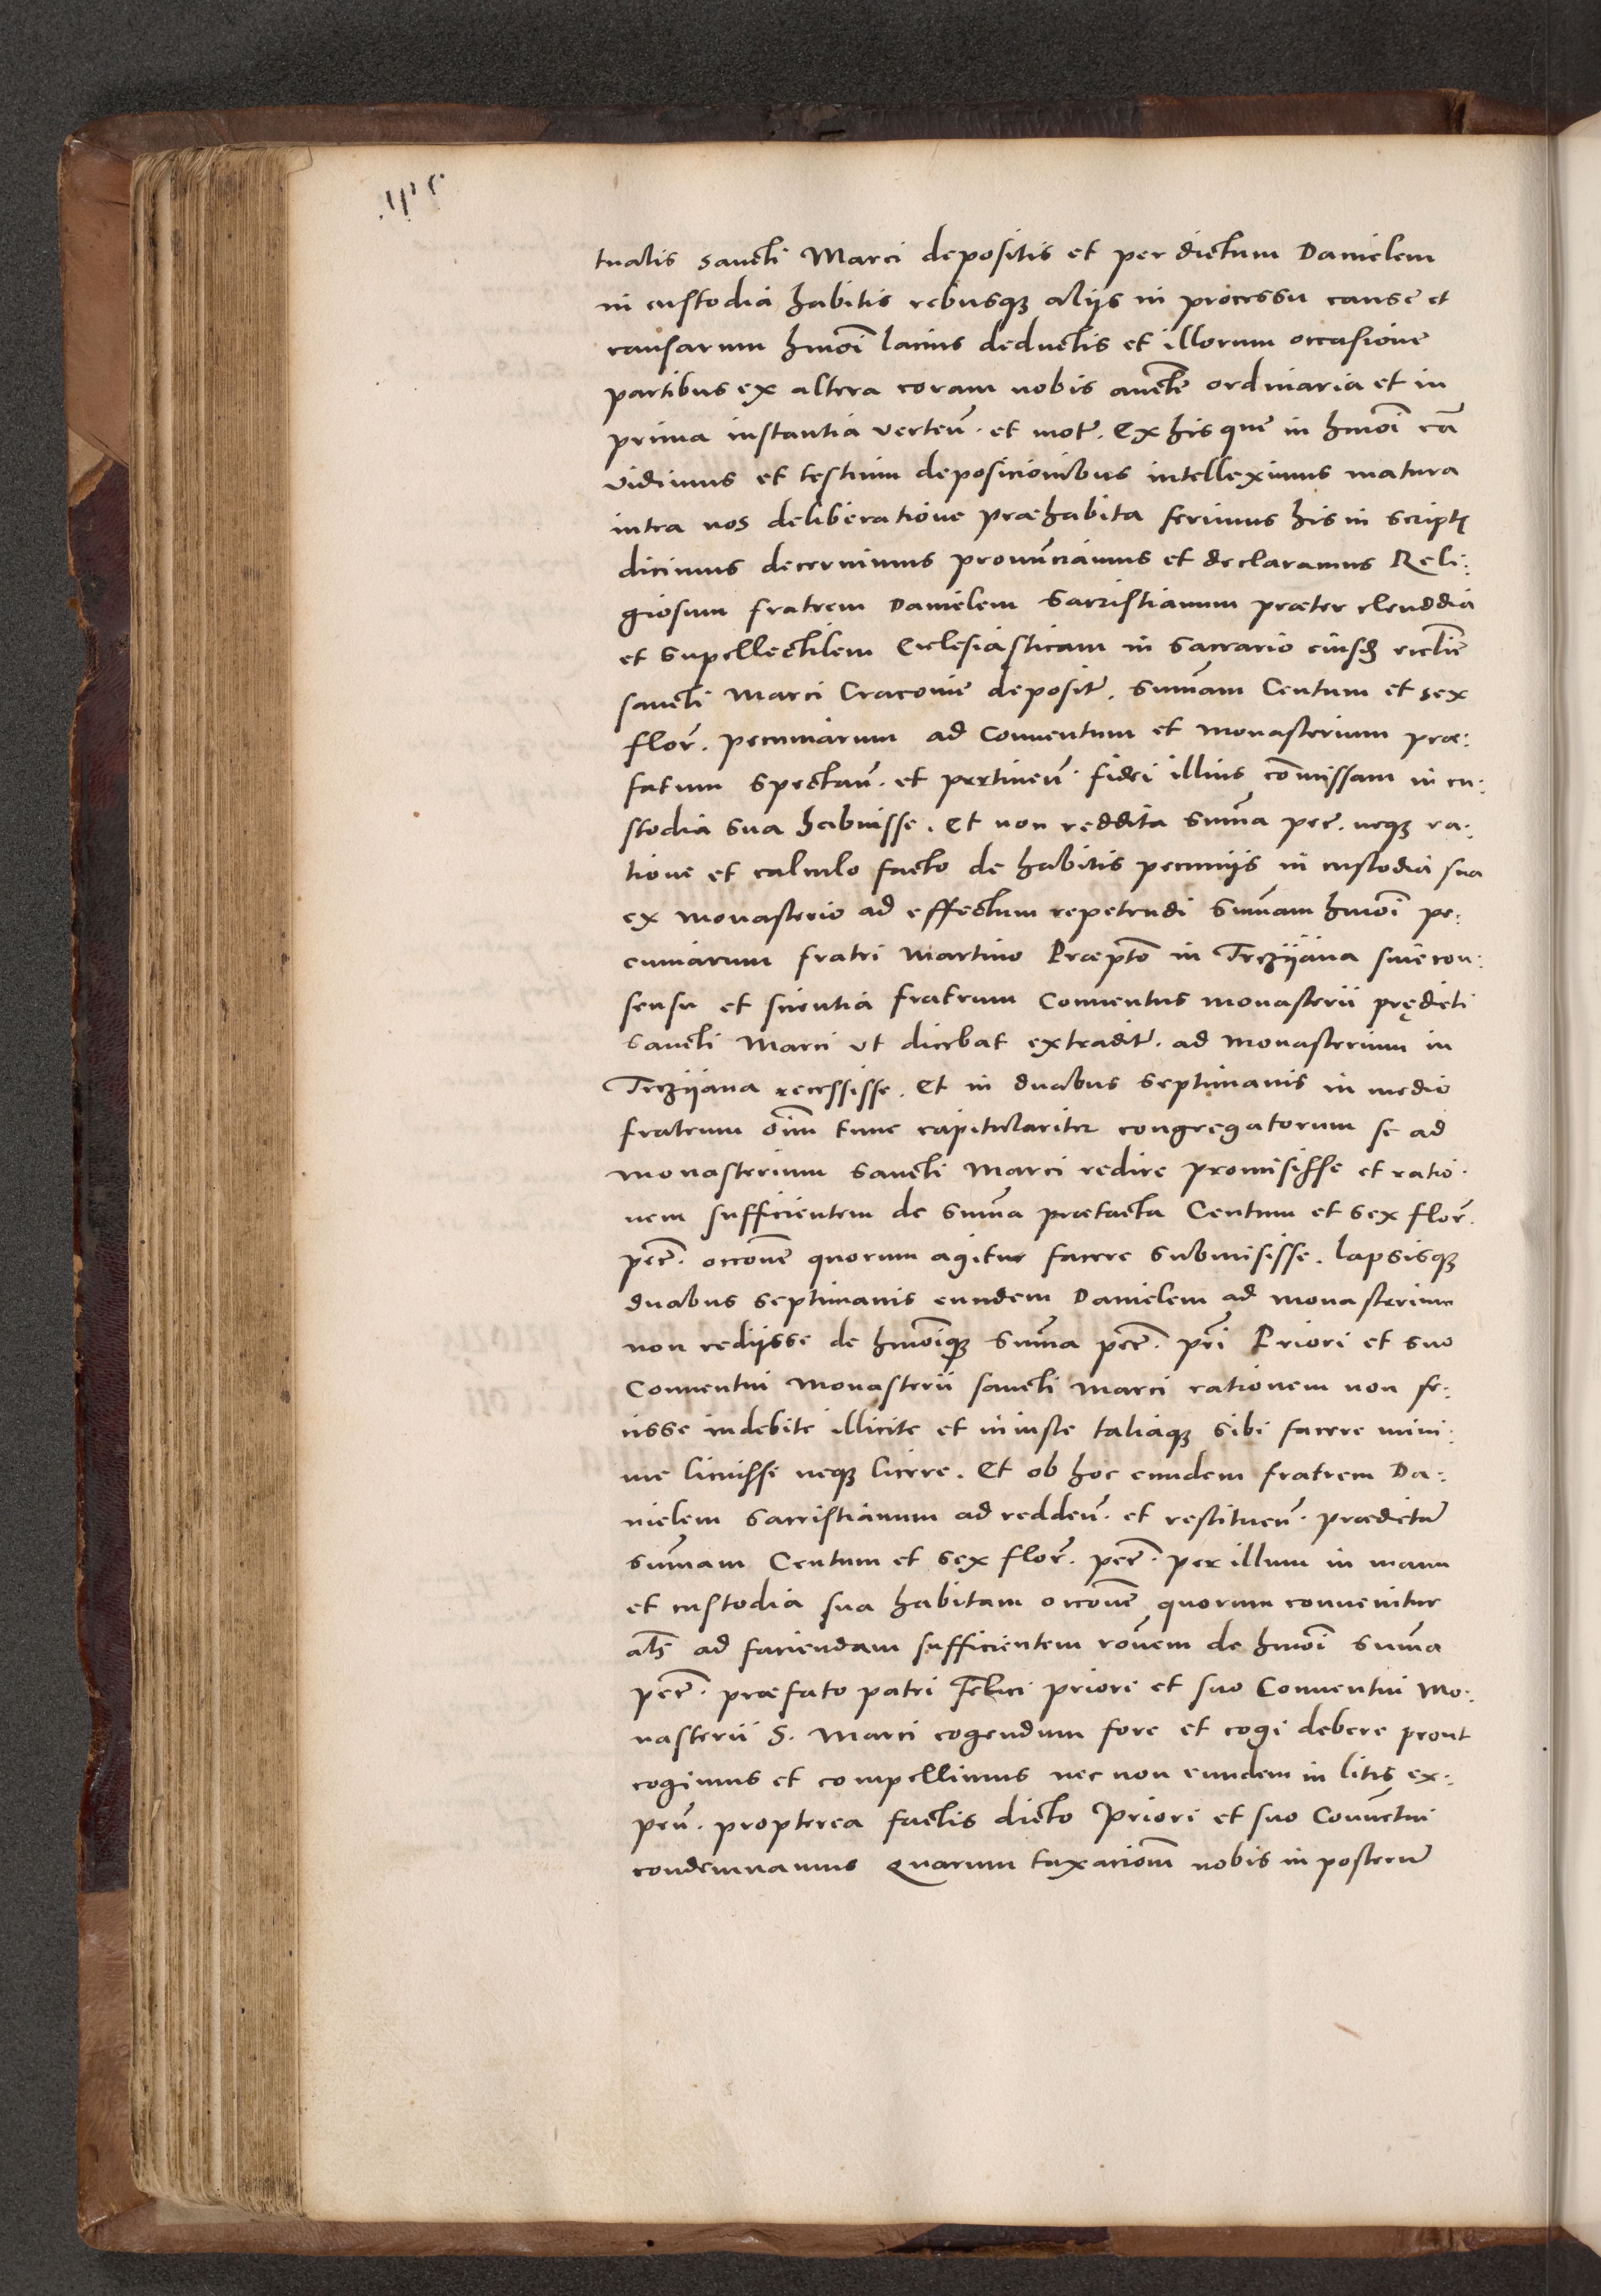 tualis sancti Marci depositis et per dictum Danielem
in custodia habitis rebusq; alijs in processu cause et
causarum hmoi͂ lacius deductis et illorum occasione
partibus ex altera coram nobis aucte͂ ordinaria et in
prima instantia verten͂. et mot͂. Ex his que in hmoi͂ cā
vidimus et testium deposicionibus intelleximus matura
intra nos deliberatione præhabita ferimus his in scriptꝭ
dicimus decernimus pronūnciamus et declaramus Reli:
giosum fratrem Danielem Sacristianum præter clenodia
et supellectilem Ecclesiasticam in Sacrario eiusd͂ eccl͂ie
sancti Marci Cracovie deposit͂. sum͂am Centum et sex
flor͂. pecuniarum ad Conventum et monasterium præ:
fatum spectan͂. et pertinen͂. fidei illius com͂issam in cu:
stodia sua habuisse. Et non reddita sum͂a pec͂. neq; ra:
tione et calculo facto de habitis pecunijs in custodia sua
ex monasterio ad effectum repetendi sum͂am hmoi͂ pe:
cuniarum fratri Martino Præpto͂ in Trczijana sine con:
sensu et scientia fratrum Conventus monasterii prędicti
Sancti Marci ut dicebat extradit͂. ad monasterium in
Trczijana recessisse. Et in duabus septimanis in medio
fratrum oīm tunc capitulariter congregatorum se ad
monasterium Sancti Marci redire promisisse et ratio:
nem sufficientem de sum͂a præfacta Centum et sex flor͂.
pec͂. occo͂ne quorum agitur facere submisisse. lapsisq;
duabus septimanis eundem Danielem ad monasterium
non redijsse de hmoi͂q; sum͂a pec͂. pr͂i Priori et suo
Conventui Monasterii sancti Marci rationem non fe:
cisse indebite illicite et iniuste taliaq; sibi facere mini:
me licuisse neq; licere. Et ob hoc eundem fratrem Da:
nielem Sacristianum ad redden͂. et restituen͂. prædictā
sum͂am Centum et sex flor͂. pec͂. per illum in manu
et custodia sua habitam occo͂ne quorum convenitur
al͂s ad faciendam sufficientem ro͂nem de hmoi͂ sum͂a
pec͂. præfato patri Felici priori et suo Conventui Mo:
nasterii S. Marci cogendum fore et cogi debere prout
cogimus et compellimus nec non eundem in litis ex:
pen͂. propterea factis dicto Priori et suo Conve͂tui
condemnamus Quarum taxacionem nobis in posterū